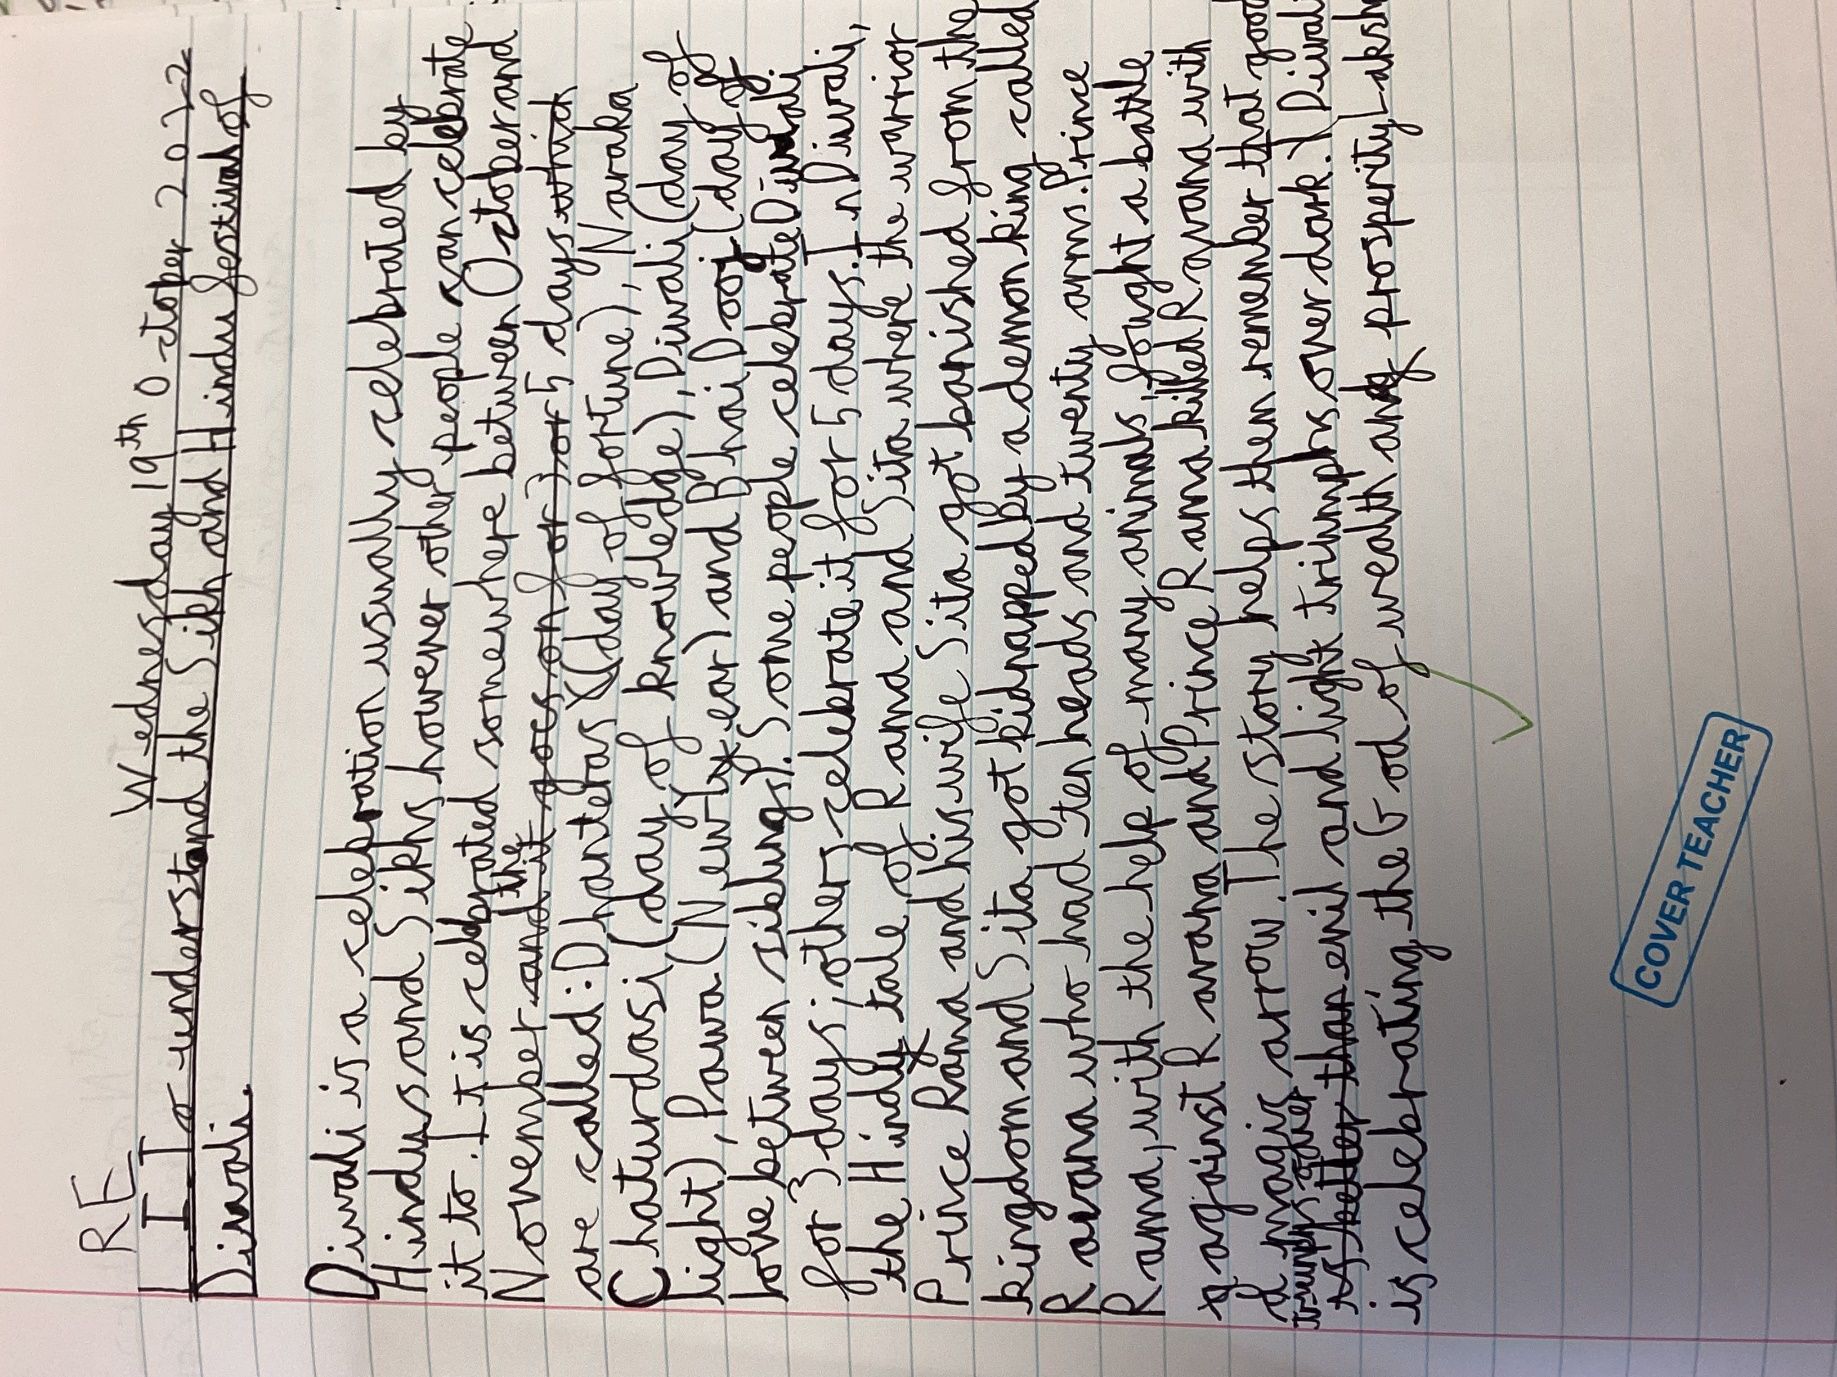 RE
Wednesday 19th October 2022
LI To understand the Sikh and Hindu festival of
Diwali.
Diwali is a celebration usually celebrated by
Hindus and Sikhs however other people can celebrate
it to. It is celebrated somewhere between October and
November and it goes on for 3 or 5 days which the
are called: Dhanteras (day of fortune), Naraka
Chaturdasi (day of knowledge), Diwali (day of
light), Pawa (New year) and Bhai Dooj (day of
love between siblings). Some people celebrate Diwali
for 3 days; others celebrate it for 5 days. In Diwali,
the Hindu tale of Rama and Sita where the warrior
Prince Rama and his wife Sita got banished from the
kingdom and Sita got kidnapped by a demon king called
Ravana who had ten heads and twenty arms. Prince
Rama, with the help of many animals, fought a battle
against Ravana and Prince Rama killed Ravana with
a magic arrow. The story helps them remember that good
triumphs over
is better than evil and light triumphs over dark. Diwali
is celebrating the God of wealth and prosperity Laksh
COVER TEACHER